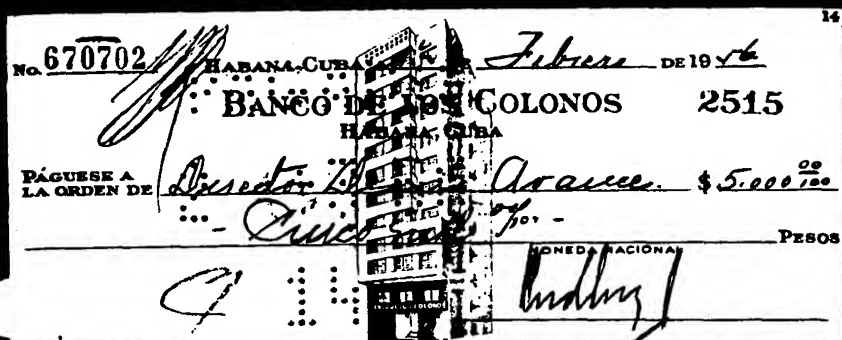 14
No. 670702 HABANA, CUBA DE Febrero DE 1956
BANCO DE LOS COLONOS 2515
HABANA, CUBA
PÁGUESE A
LA ORDEN DE Director Avance. $ 5.000 00/100
- Cinco mil 00/100 - PESOS
MONEDA NACIONAL